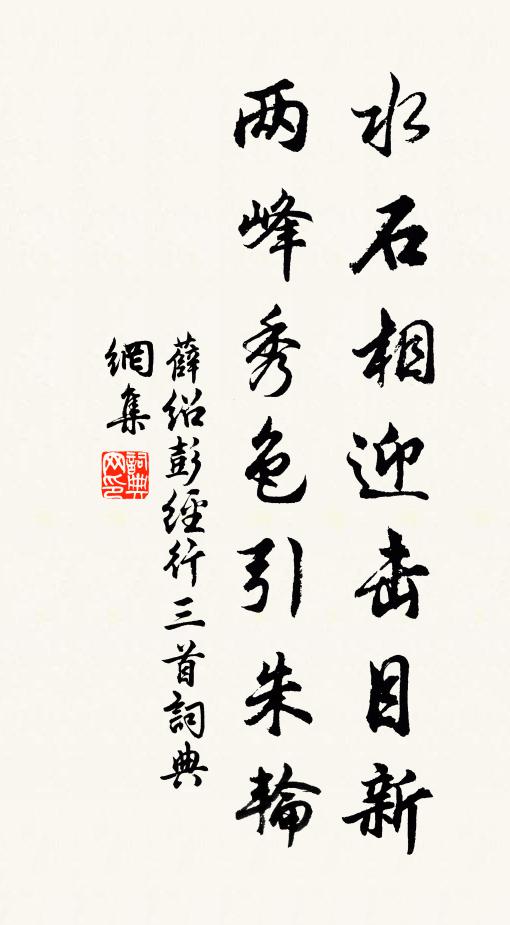 水石相迎击目新
两峰秀色引朱輪
薛绍彭經行三首詞典
網集
詞典网印